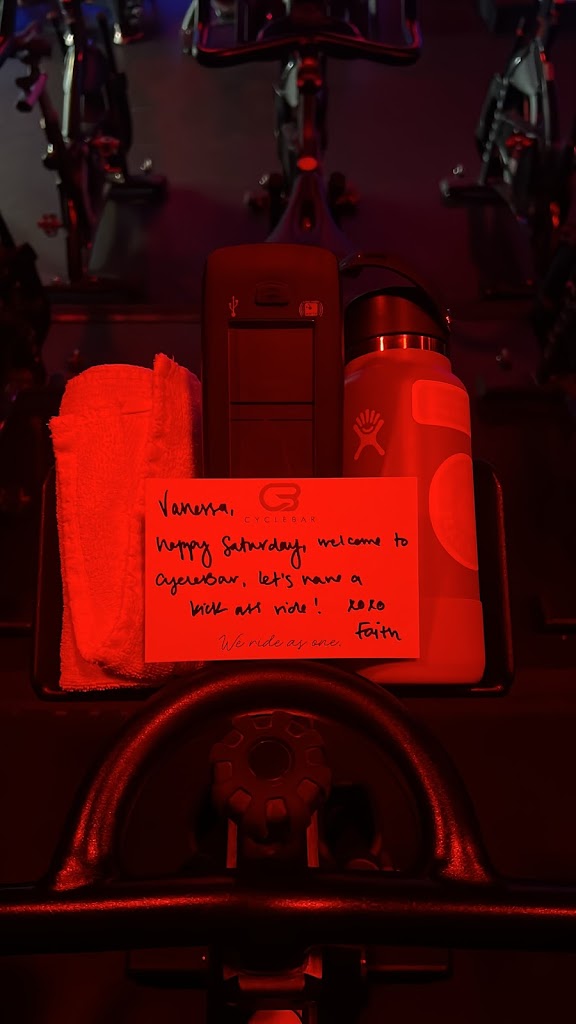 CYCLEBAR
Vanessa,
Happy Saturday, welcome to
CycleBar, let's have a
kick ass ride! xoxo
Faith
We ride as one.